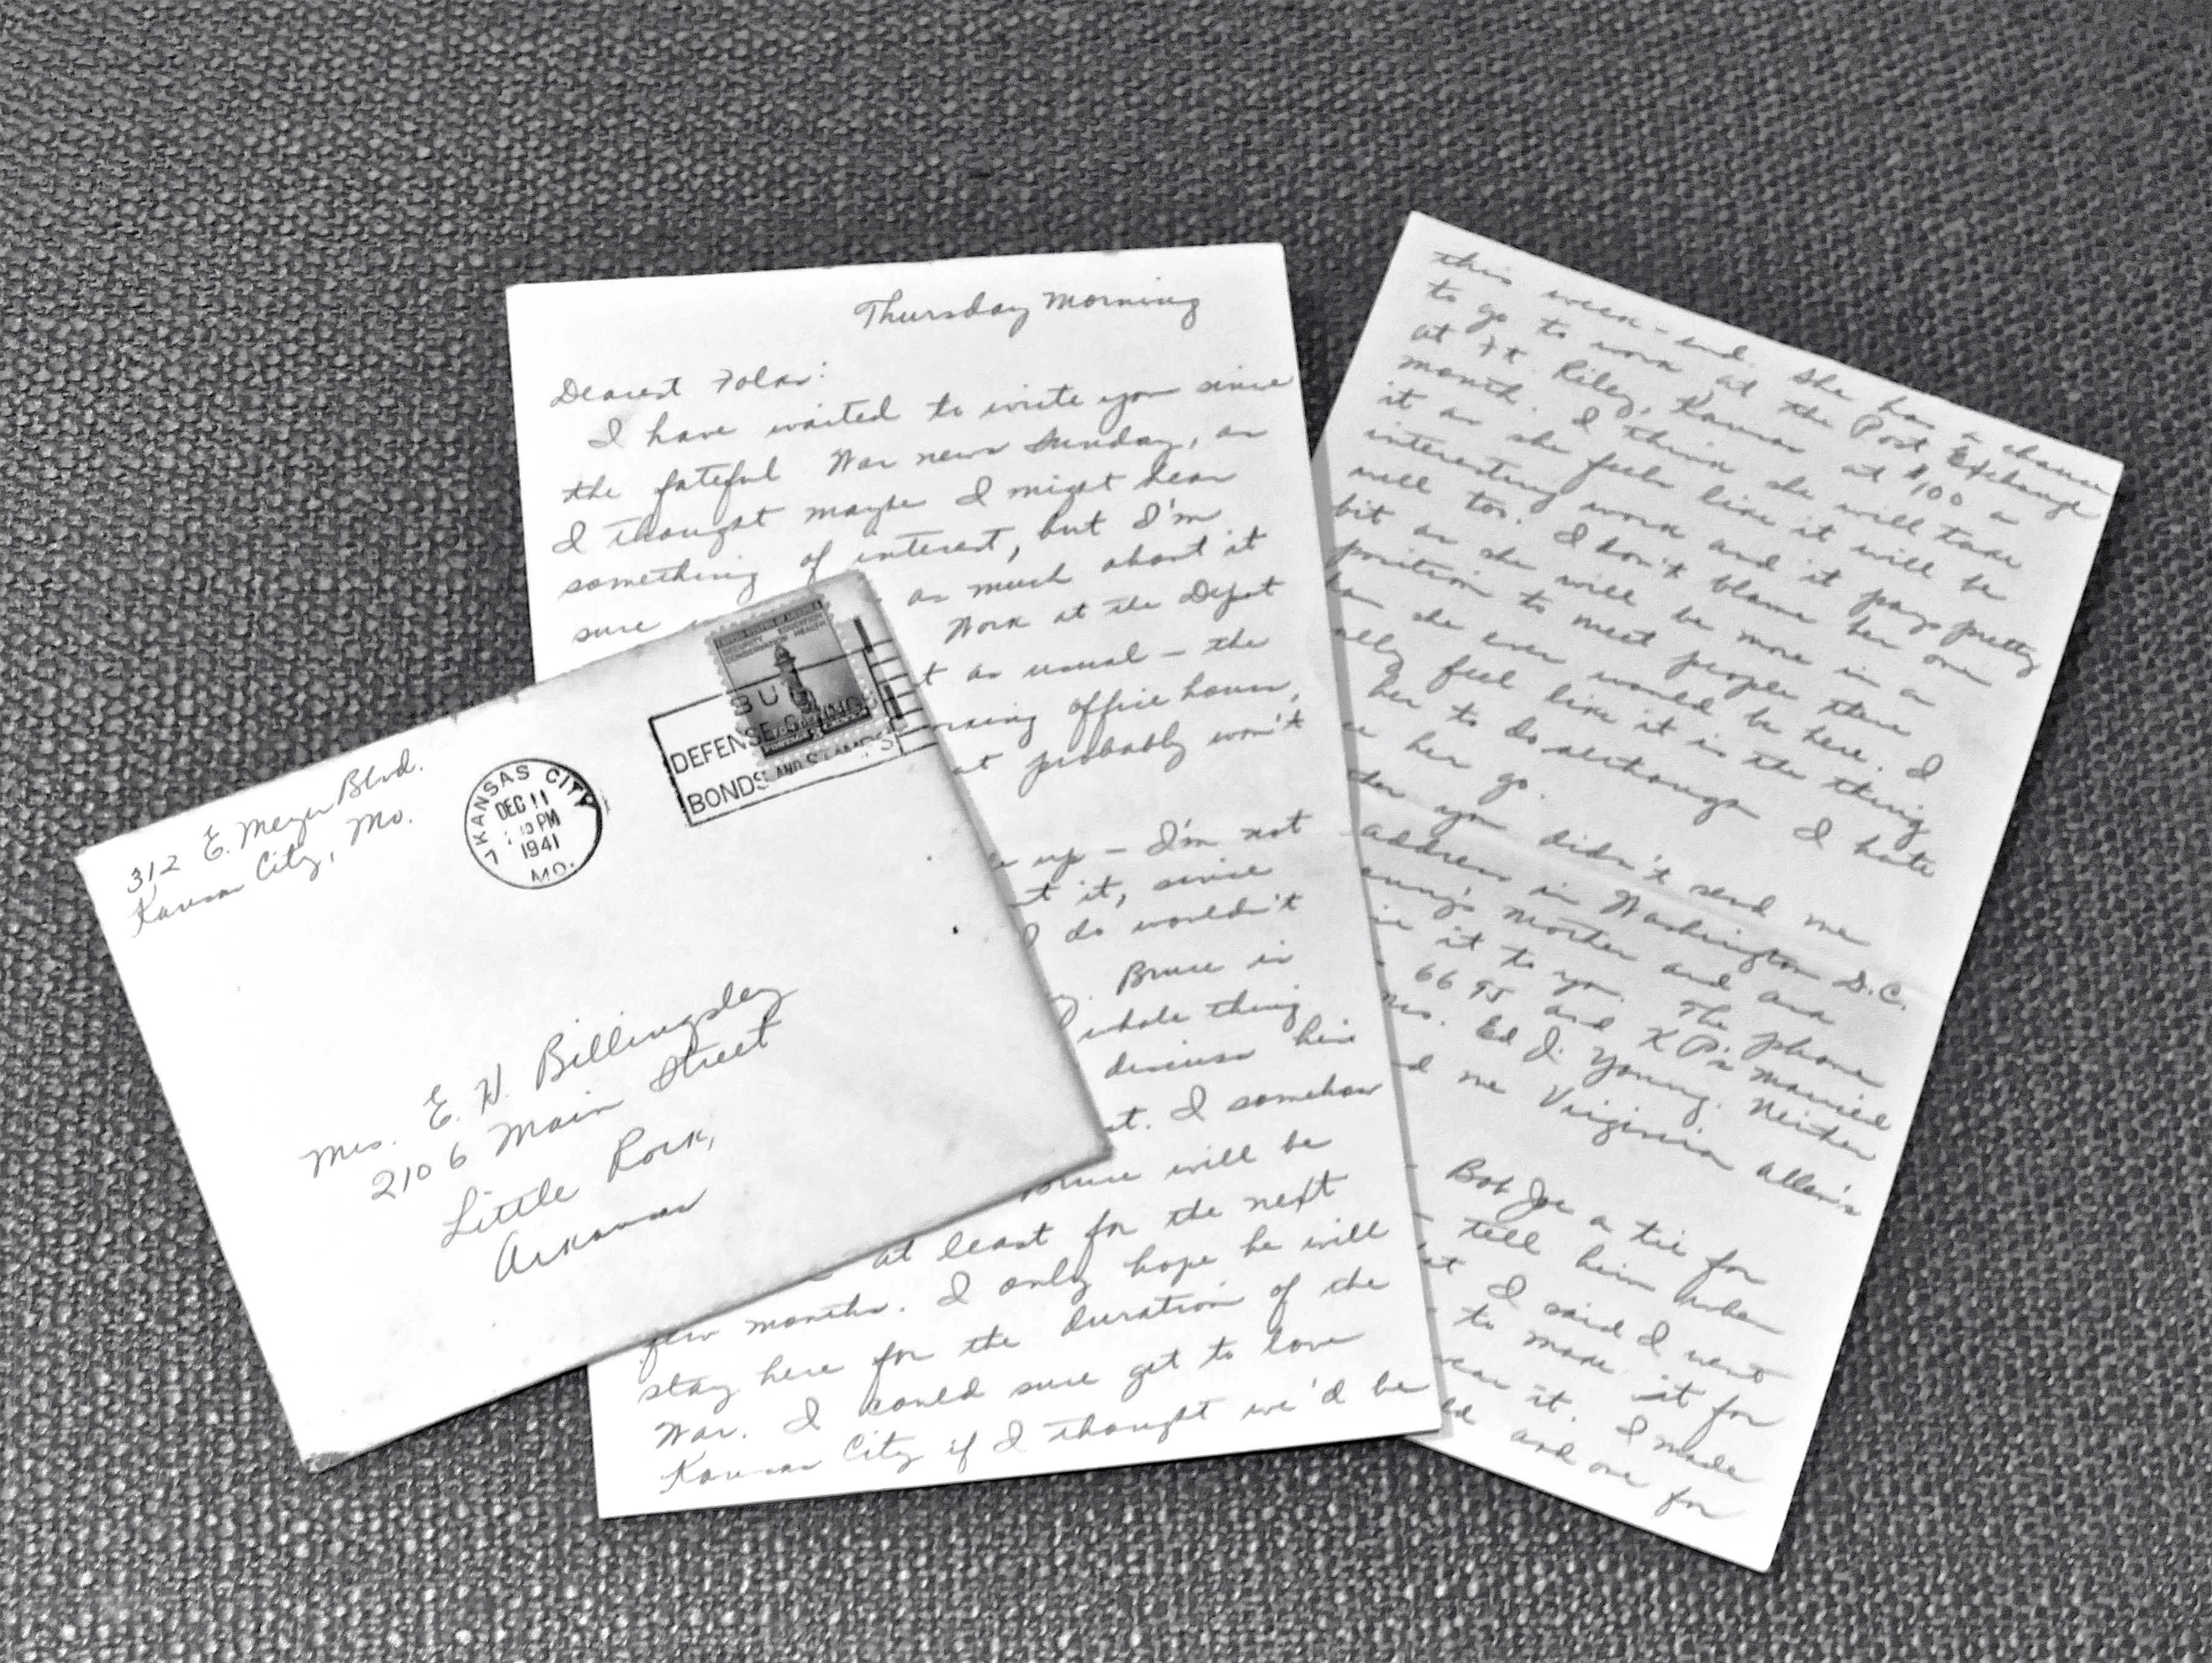 312 E. Meyer Blvd.
Kansas City, Mo.
KANSAS CITY
DEC 11
PM
1941
MO.
BUY
DEFENSE SAVINGS
BONDS AND STAMPS
SECURITY EDUCATION
CONSERVATION HEALTH
Mrs. E. H. Billingsley
2106 Main Street
Little Rock,
Arkansas
Thursday Morning
Dearest Folks:
I have waited to write you since
the fateful War news Sunday, as
I thought maybe I might hear
something of interest, but I'm
sure as much about it
Work at the Depot
t as usual - the
office hours,
at probably won't
up - I'm not
t it, since
I do wouldn't
Bruce in
whole thing
discuss his
st. I somehow
Bruce will be
at least for the next
few months. I only hope he will
stay here for the duration of the
War. I could sure get to love
Kansas City if I thought we'd be
this week-end. She has a chance
to go to work at the Post Exchange
at Ft. Riley, Kansas at $100 a
month. I think she will take
it as she feels like it will be
interesting work and it pays pretty
well too. I don't blame her one
bit as she will be more in a
position to meet people there
than she ever would be here. I
ally feel like it is the thing
her to do although I hate
her go.
you didn't send me
address in Washington D.C.
Mother and
it to you. The phone
6695 and K P's married
Mrs. Ed J. Young. Neither
d me Virginia Allen's
Bob Joe a tie for
tell him when
I said I went
to make it for
wear it. I made
and one for